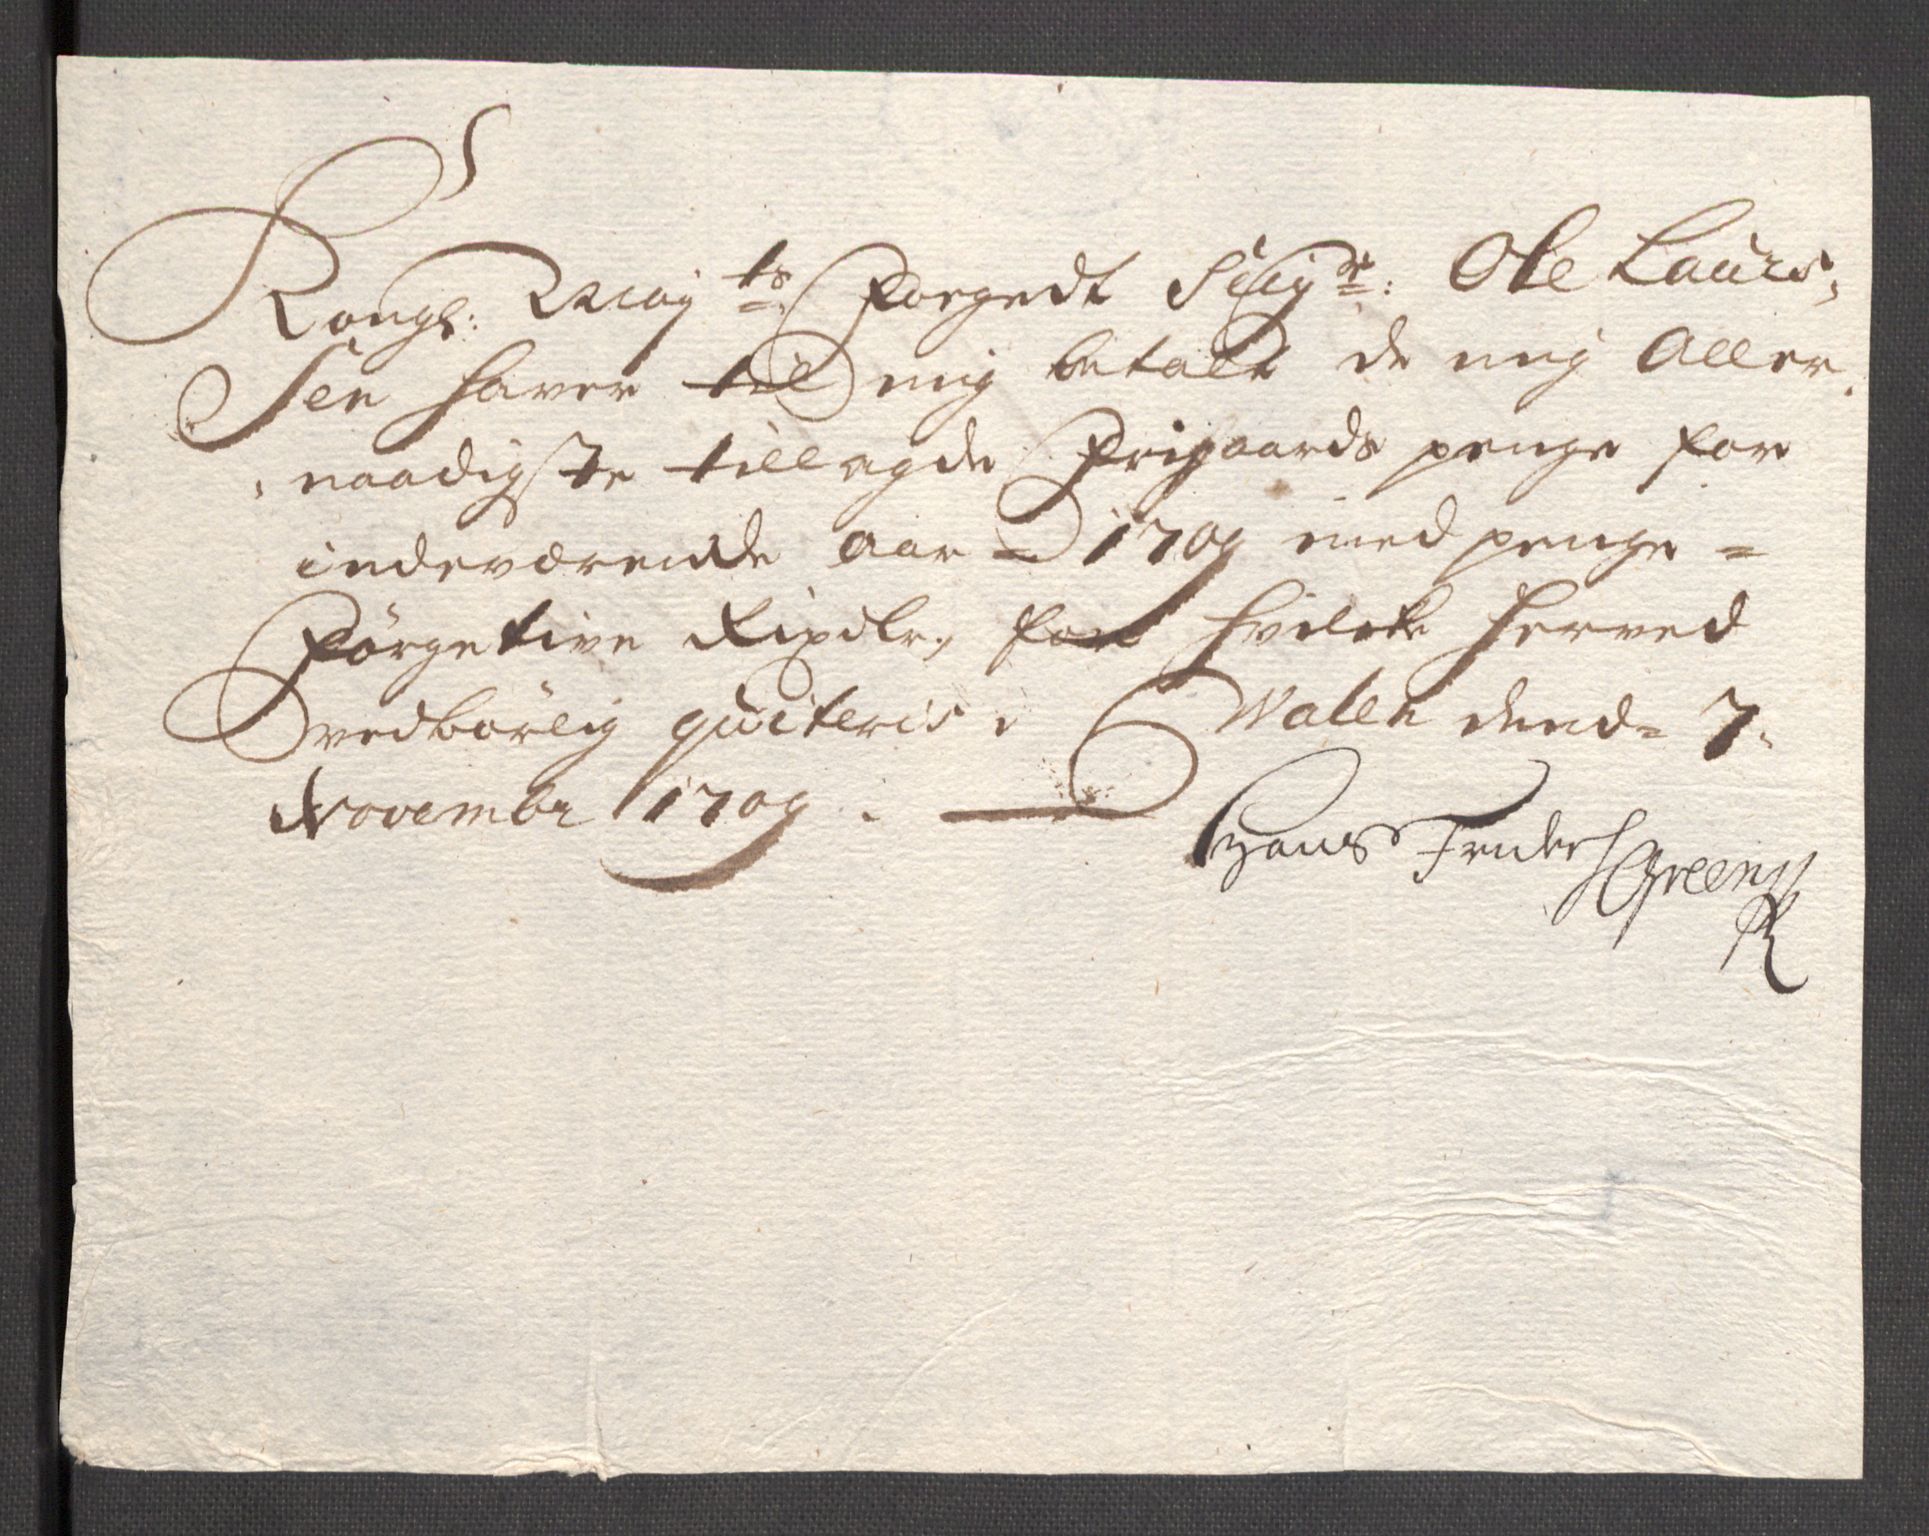 Kongl: Maj ts Forgedt Siigr: Ole Laurs,
Sen haver till mig betalt de mig Aller,
naadigste tillagde Frigaards penge for
indeværende Aar = 1709 med penge =
Førgetive Rixdlr, for hvilcke herved
vedbørlig quiteris, Walle dend= 7.
November 1709.
Hans Frider Green